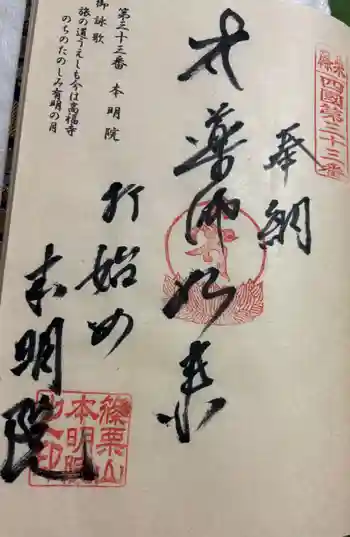 篠栗四國第三十三番
奉納
大薬師如来
打始め
本明院
篠栗山
本明院
之印
第三十三番 本明院
御詠歌
旅の道うえしも今は高福寺
のちのたのしみ有明の月